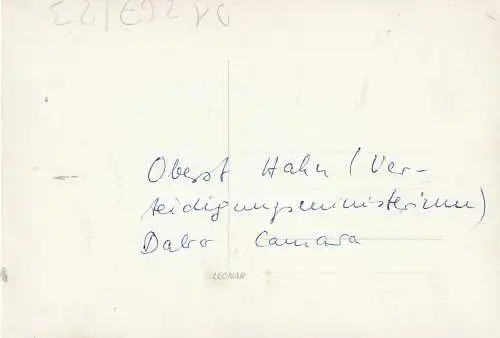 Oberst Hahn (Ver-
teidigungsministerium)
Dabo Camara
LEONAR